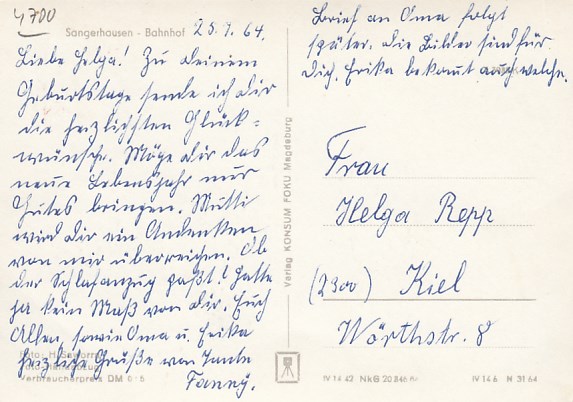 4700
Sangerhausen - Bahnhof 25.9.64.
Liebe Helga! Zu deinem
Geburtstage sende ich dir
die herzlichsten Glück=
wünsche. Möge dir das
neue Lebensjahr nur
Gutes bringen. Mutti
wird dir ein Andenken
von mir überreichen. Ob
der Schlafanzug paßt! Hatte
ja kein Maß von dir. Euch
Allen, sowie Oma u. Erika
herzliche Grüße von Tante
Fanny.
Verbraucherpreis DM
Brief an Oma folgt
später. die Bilder sind für
dich, Erika bekommt auch welche.
Verlag KONSUM FOKU Magdeburg
Frau
Helga Repp
(2300) Kiel
Wörthstr. 8
IV 14 42 NkG 20 846 64 IV 14 6 M 31 64